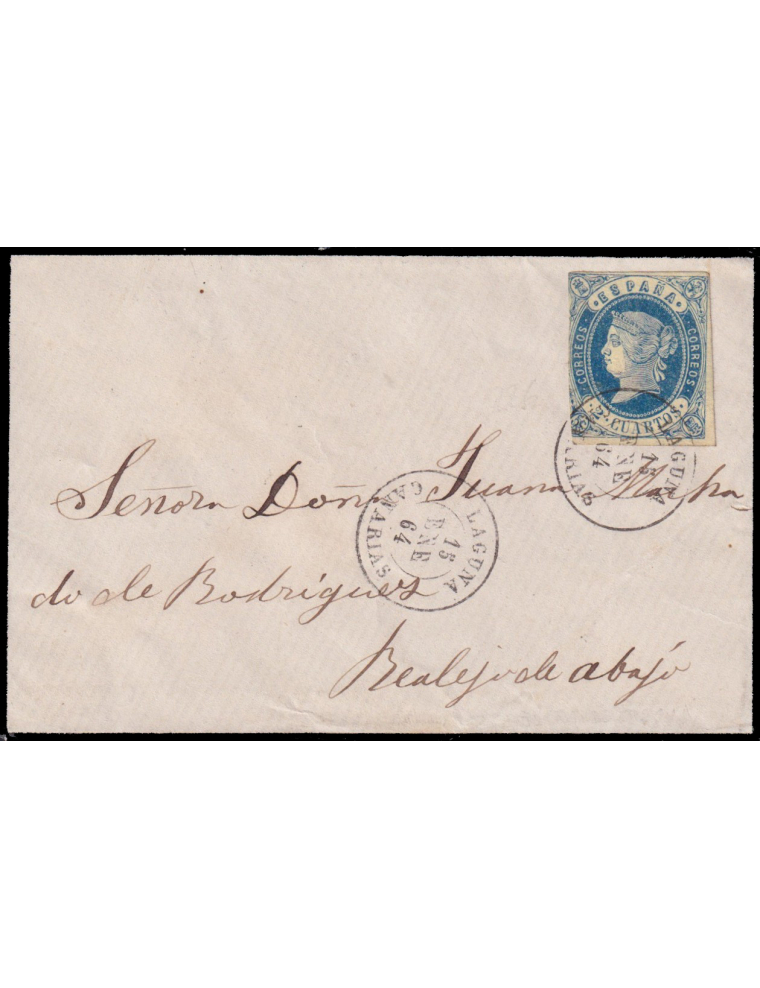 · ESPAÑA ·
CORREOS ·
CORREOS ·
· 2 CUARTOS. ·
LAGUNA
15
ENE
64
Señora Doña Juana Macha-
LAGUNA
15
ENE
64
CANARIAS
do de Rodrigues
Realejo de abajo